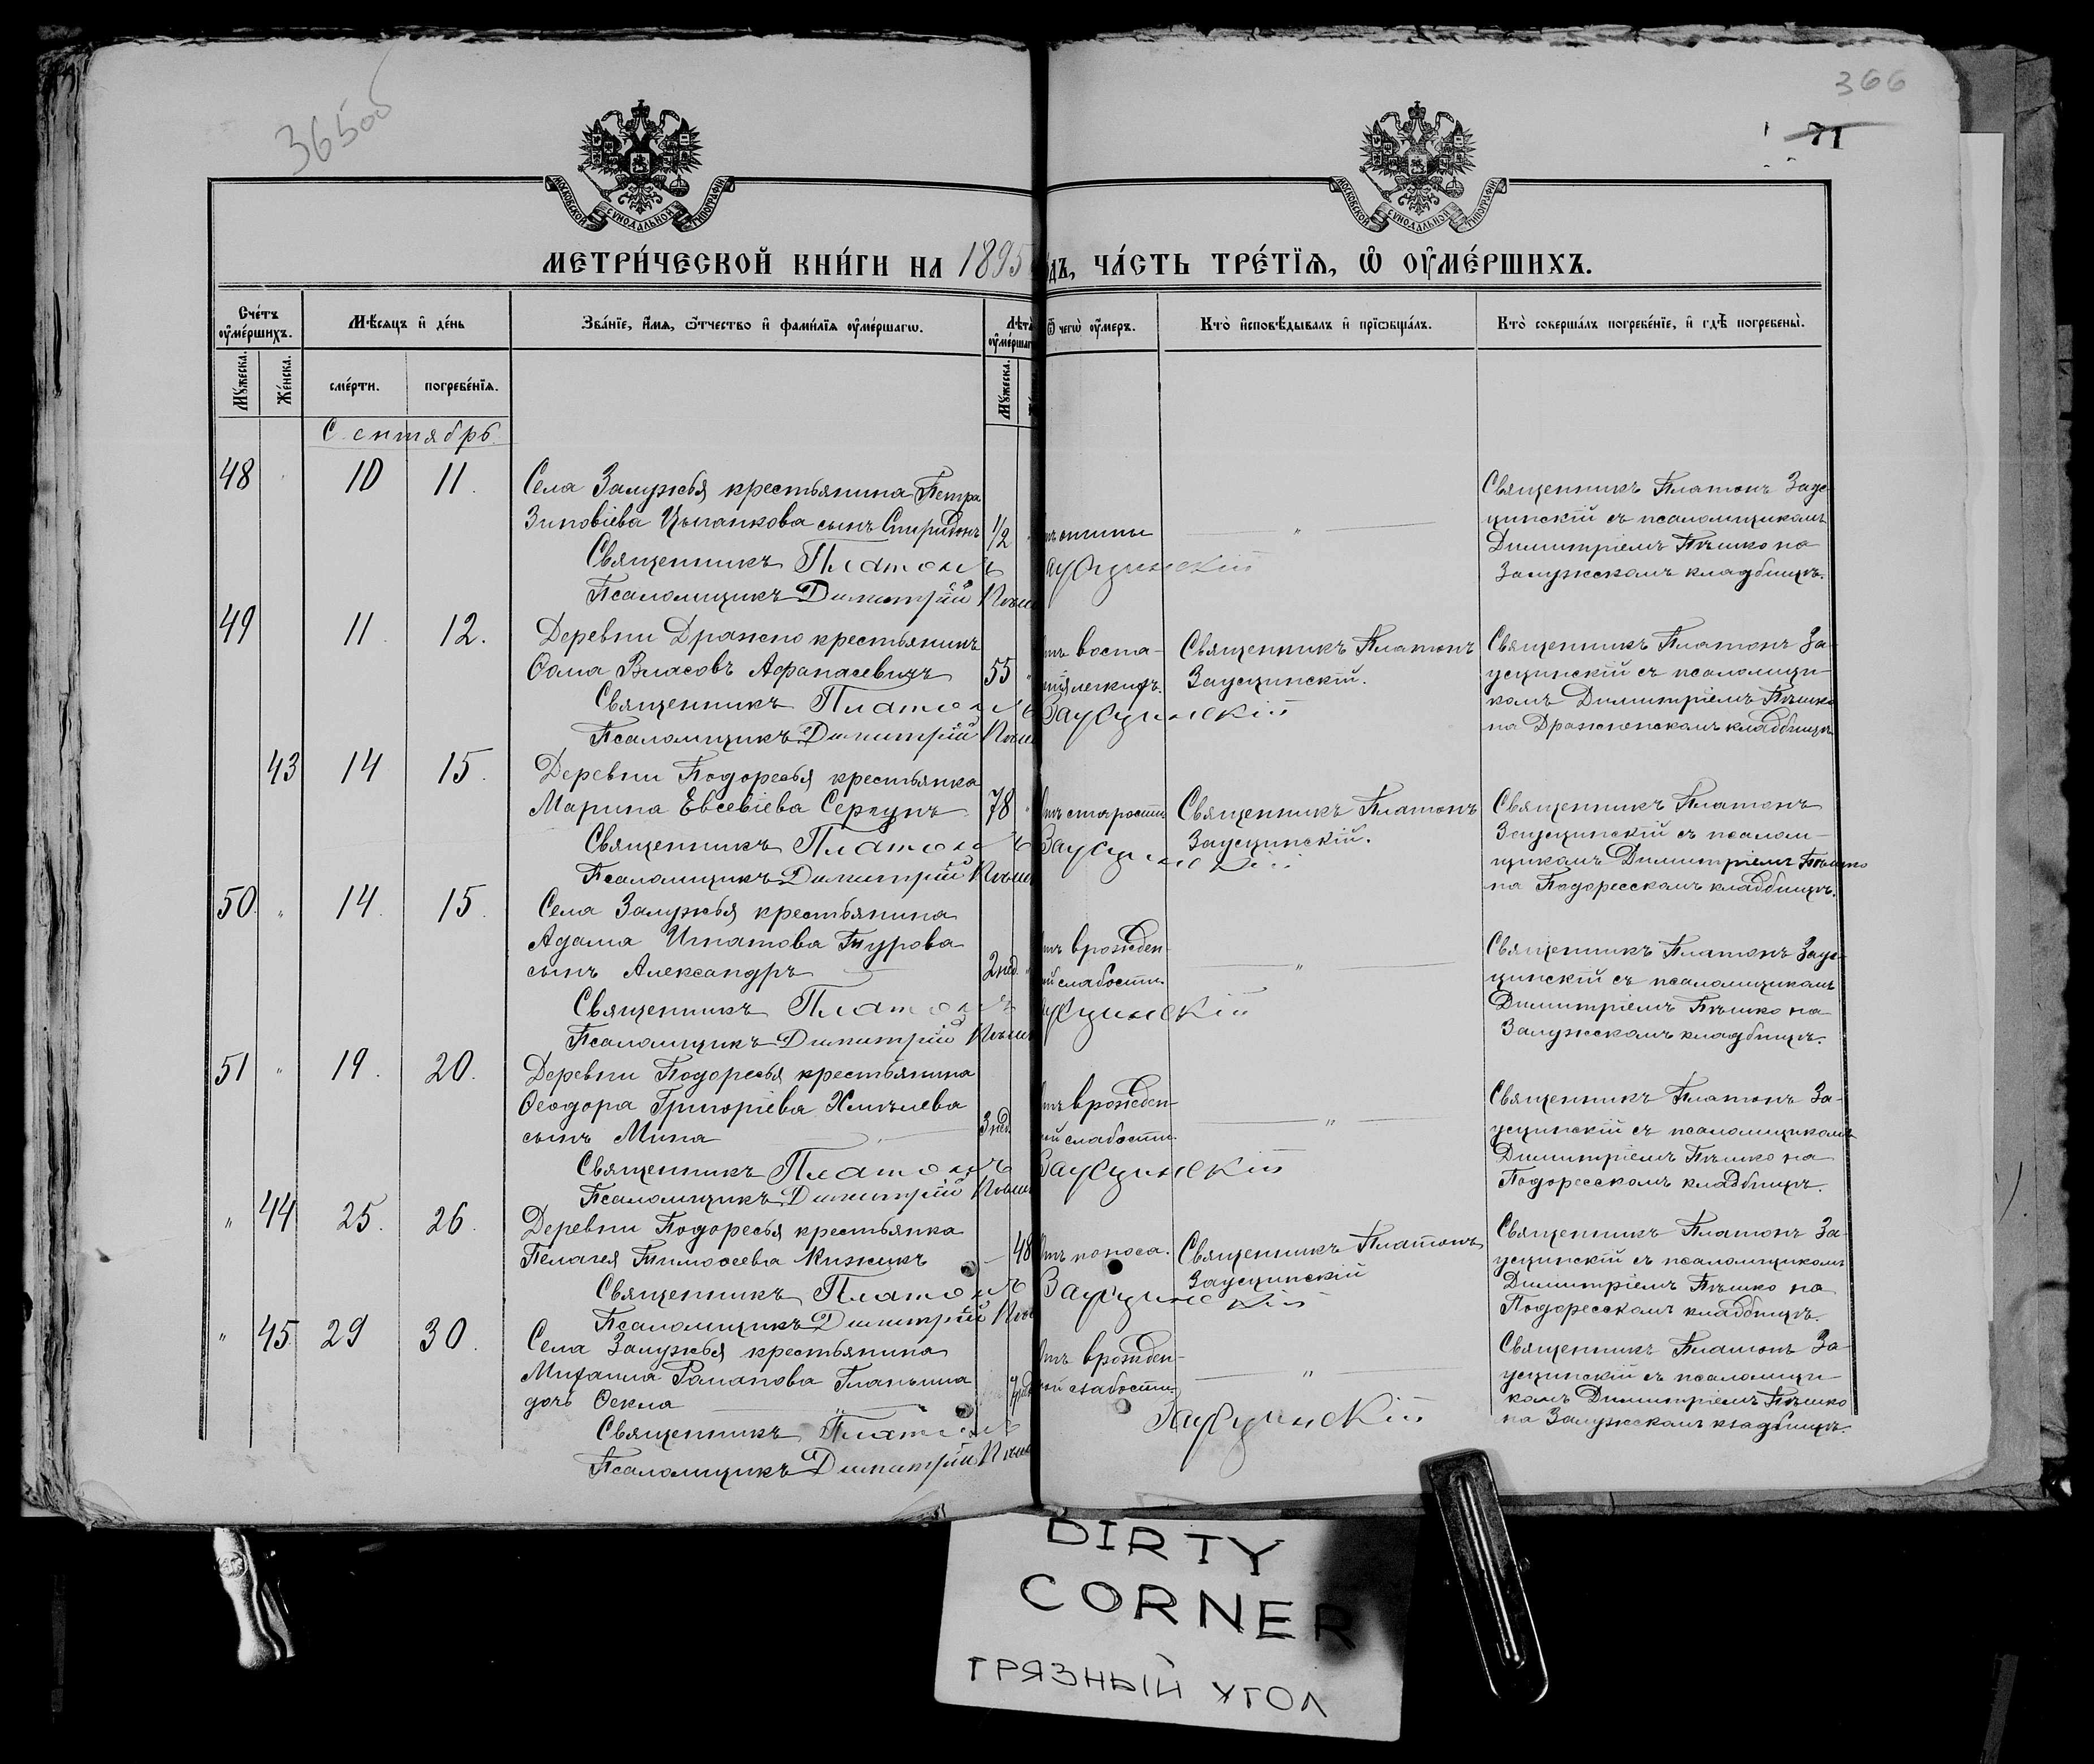 365об
366
71
МОСКОВСКОЙ СУНОДАЛЬНОЙ ТИПОГРАФІИ
МОСКОВСКОЙ СУНОДАЛЬНОЙ ТИПОГРАФІИ
МЕТРИ́ЧЕСКОЙ КНИ́ГИ НА 1895
ОДЪ, ЧА́СТЬ ТРЕ́ТІѦ, Ѡ ОУ҆МЕ́РШИХЪ.
Сче́тъ оу҆ме́ршихъ.
Мѣ́сѧцъ и҆ де́нь
Зва́нїе, и҆́мѧ, ѻ҆́тчество и҆ фами́лїѧ оу҆ме́ршагѡ.
Лѣта̀
оу҆ме́ршаг
Ѿ чегѡ̀ оу҆́меръ.
Кто̀ и҆сповѣ́дывалъ и҆ прїѡбща́лъ.
Кто̀ соверша́лъ погребе́нїе, и҆ гдѣ̀ погребены̀.
Му́жеска.
Же́нска.
сме́рти.
погребе́нїѧ.
Му́жеска.
Сентябрь.
48 10 11.
Села Залужья крестьянина Петра
Зиновіева Цыганкова сынъ Спиридонъ 1/2
Священникъ Платонъ Заусцинскій
Псаломщикъ Димитрій Пѣш
Священникъ Платонъ Заус-
цинскій съ псаломщикомъ
Димитріемъ Пѣшко на
Залужскомъ кладбищѣ.
49 11. 12.
Деревни Дражно крестьянинъ
Ѳома Власовъ Афанасевичъ 55 "
Священникъ Платонъ Заусцинскій
Псаломщикъ Димитрій Пѣш
тъ воспа-
нія легкихъ.
Священникъ Платонъ
Заусцинскій.
Священникъ Платонъ За-
усцинскій съ псаломщи-
комъ Димитріемъ Пѣшко
на Дражненскомъ кладбищѣ
43 14 15.
Деревни Подоресья крестьянка
Марина Евсевіева Сергунъ 78 "
Священникъ Платонъ Заусцинскій
Псаломщикъ Димитрій Пѣш
тъ старости
Священникъ Платонъ
Заусцинскій.
Священникъ Платонъ
Заусцинскій съ псалом-
щикомъ Димитріемъ Пѣшко
на Подоресскомъ кладбищѣ.
50. " 14. 15.
Села Залужья крестьянина
Адама Игнатова Турова
сынъ Александръ 2 нед. "
Священникъ Платонъ Заусцинскій
Псаломщикъ Димитрій Пѣш
тъ врожден-
ой слабости.
"
Священникъ Платонъ Заус-
цинскій съ псаломщикомъ
Димитріемъ Пѣшко на
Залужскомъ кладбищѣ.
51 " 19. 20.
Деревни Подоресья крестьянина
Ѳеодора Григоріева Хмѣлева
сынъ Мина 3 нед.
Священникъ Платонъ Заусцинскій
Псаломщикъ Димитрій Пѣш
тъ врожден-
ой слабости.
"
Священникъ Платонъ За-
усцинскій съ псаломщикомъ
Димитріемъ Пѣшко на
Подоресскомъ кладбищѣ.
" 44 25. 26.
Деревни Подоресья крестьянка
Пелагея Тимоѳеева Кижикъ — 48
Священникъ Платонъ Заусцинскій
Псаломщикъ Димитрій Пѣ
Отъ поноса.
Священникъ Платонъ
Заусцинскій
Священникъ Платонъ За-
усцинскій съ псаломщикомъ
Димитріемъ Пѣшко на
Подоресскомъ кладбищѣ.
" 45. 29 30.
Села Залужья крестьянина
Михаила Романова
дочь Ѳекла
Священникъ Платонъ Заусцинскій
Псаломщикъ Димитрій Пѣш
Отъ врожден-
ной слабости.
"
Священникъ Платонъ За-
усцинскій съ псаломщи-
комъ Димитріемъ Пѣшко
на Залужскомъ кладбищѣ.
DIRTY
CORNER
ГРЯЗНЫЙ УГОЛ